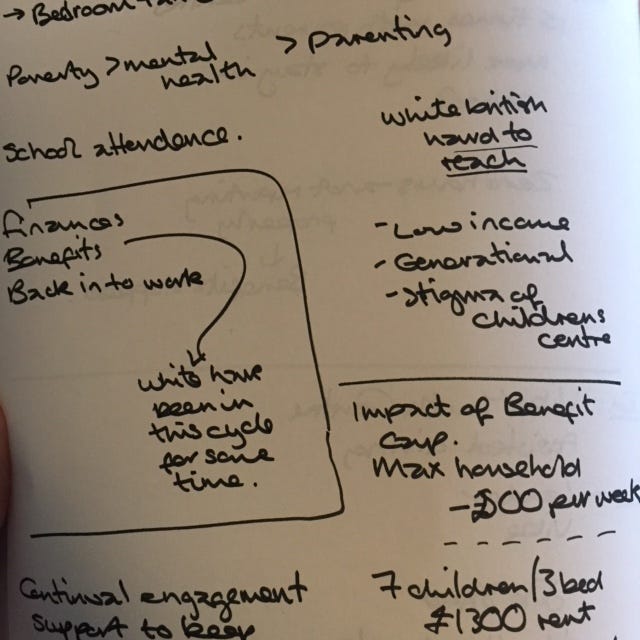 → Bedroom
Poverty > mental
health
> parenting
School attendence.
finances
Benefits
Back in to work
white have
been in
this cycle
for some
time.
white british
hard to
reach
- Low income
- Generational
- stigma of
childrens
centre
Impact of Benefit
Cap.
Max household
- £500 per week
7 children/3 bed
£1300 rent
Continual engagement
support to keep